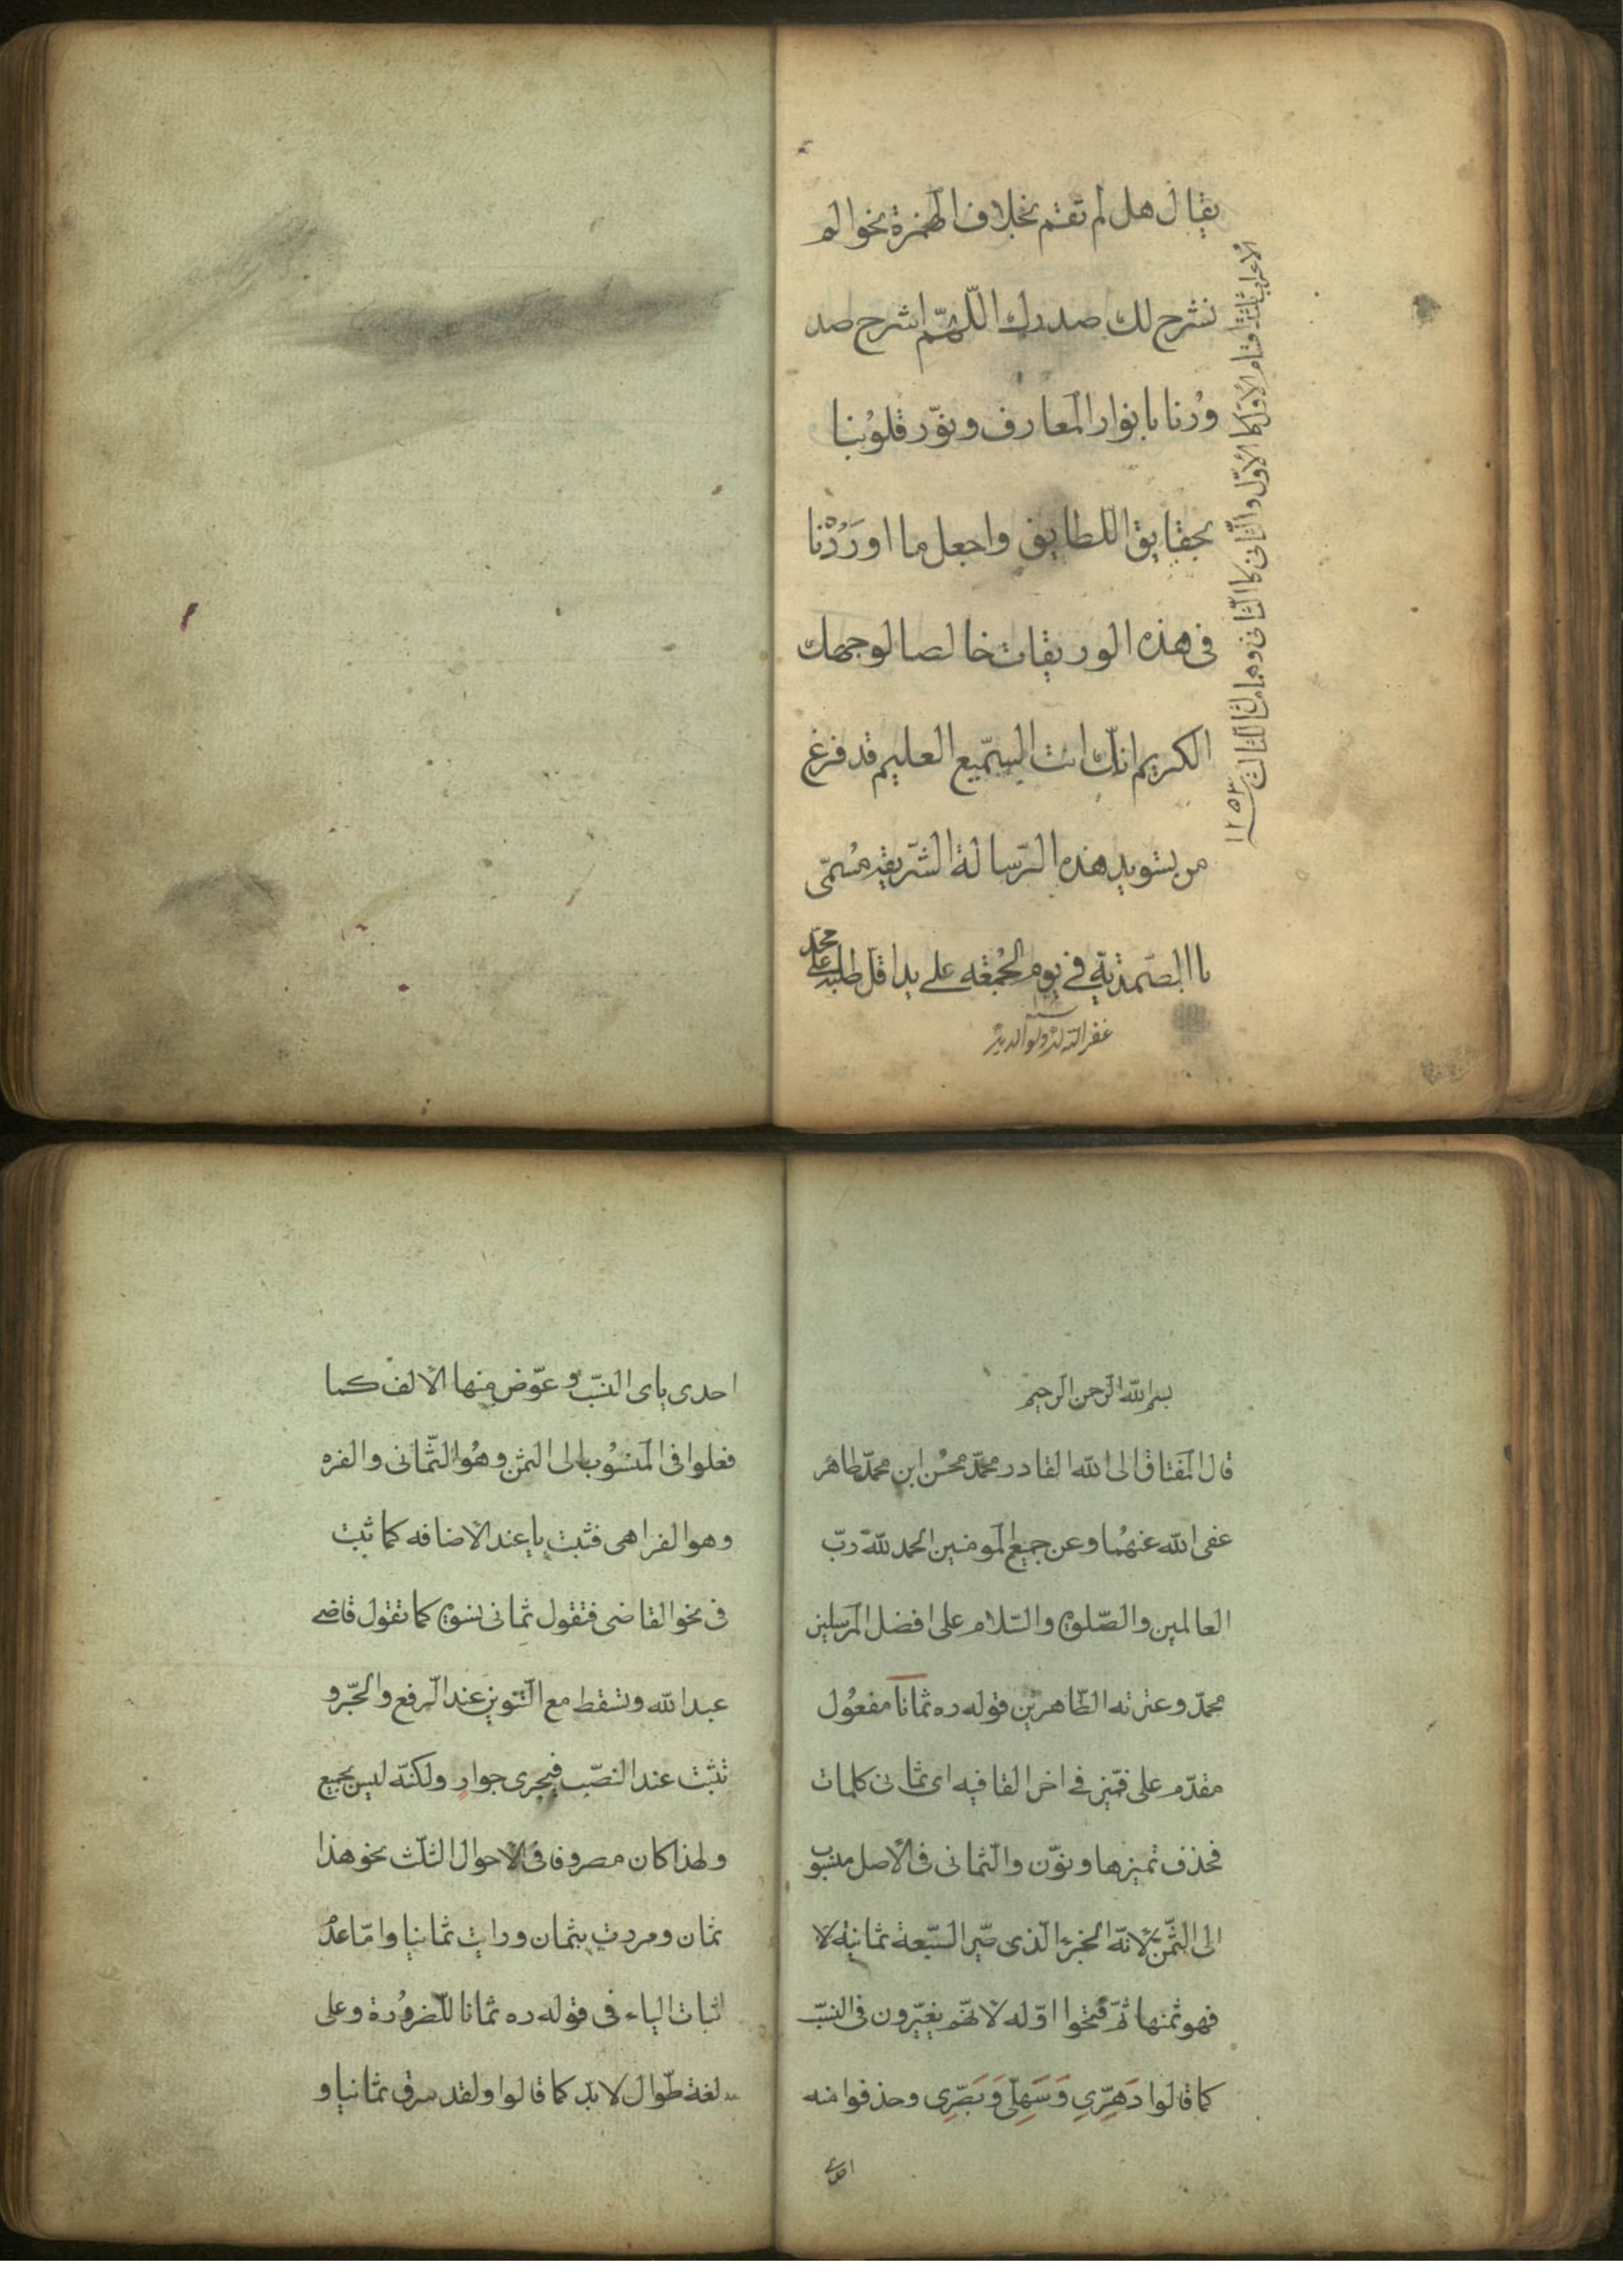 يقال هل لم تقم بخلاف الهمزة نحو الم
نشرح لك صدرك اللّهمّ اشرح صد
ورنا بانوار المعارف ونوّر قلوبنا
بحقايق اللطايف واجعل ما اوردنا
فى هذه الوريقات خالصا لوجهك
الكريم انّك انت السّميع العليم قد فرغ
من تسويد هذه الرّسالة الشّريفه مسمّى
باالصّمديّة فى يوم الجمعه على يد اقلّ طلبه محمّد على
غفر الله له ولوالديه
الاعراب ثلثة اقسام الاوّل كا الاوّل والثّانى كا الثّانى
١٢٥٣
بسم الله الرّحمن الرّحيم
قال المفتاق الى الله القادر محمّد محسن ابن محمّد طاهر
عفى الله عنهما وعن جميع المومنين الحمد للّه ربّ
العالمين والصّلوة والسّلام على افضل المرسلين
محمّد وعترته الطّاهرين قوله ره ثمانا مفعول
مقدّم على فى اخر القافيه اى ثمانى كلمات
فحذف تميزها ونوّن والثّمانى فى الاصل منسوب
الى الثّمن لانّه الجزء الّذى صيّر السّبعة ثمانية لا
فهو ثمنها ثمّ فتحوا اوّله لانّهم يغيّرون فى النسّب
كما قالوا دَهِرّى وَسَهِلّى وَبَصِرّى وحذفوا منه
احدى
احدى ياى النسّب وعوّض منها الالف كما
فعلوا فى المنسوب الى اليمن وهو الثّمانى والفره
وهو الفراهى فثبت ياء عند الاضافه كما ثبت
فى نحو القاضى فتقول ثمانى نسوة كما تقول قاضى
عبد الله وتسقط مع التّنوين عند الرّفع والجّر و
تثبت عند النصّب فيجرى جوارٍ ولكنّه ليس بجمع
ولهذا كان مصروفا فى الاحوال الثلّث نحو هذا
ثمان ومررت بثمان ورايت ثمانيا وامّا عدم
اثبات الياء فى قوله ره ثمانا للّضرورة وعلى
لغة طوال لابدّ كما قالوا ولقد سرق ثمانيا و